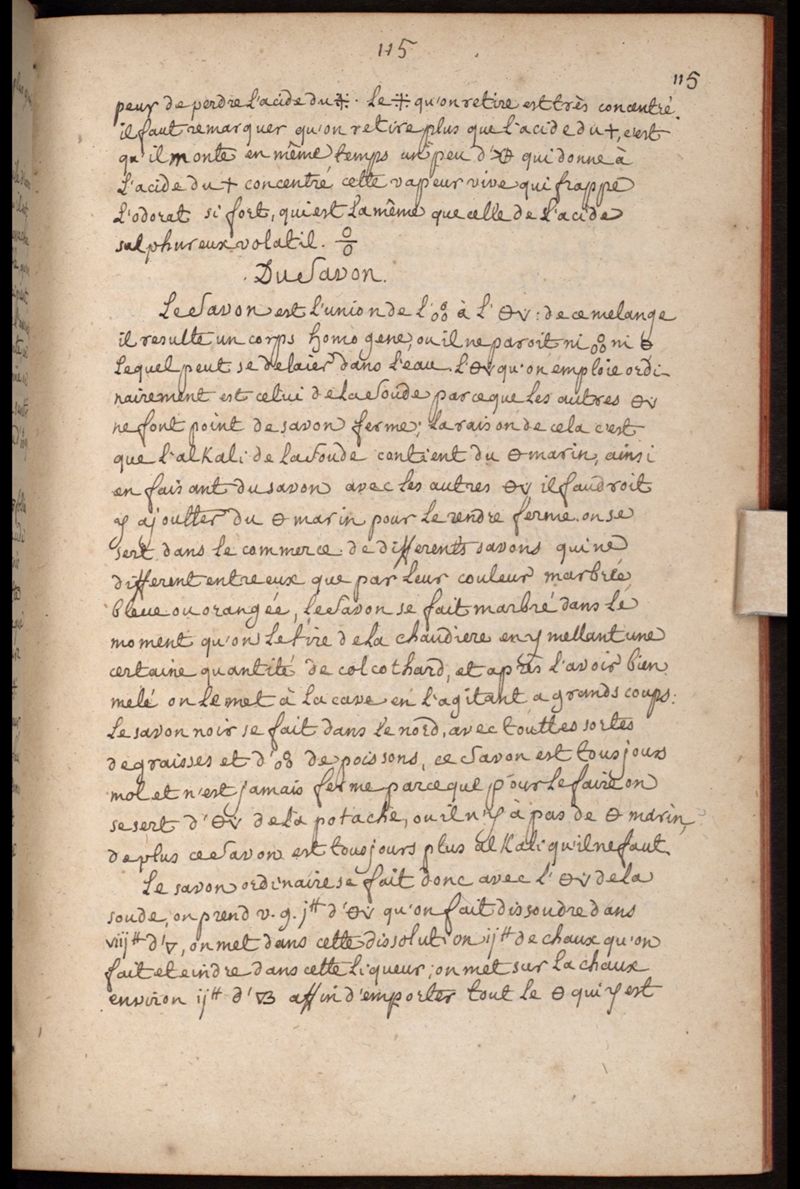 115
115
peur de perdre l'acide du ⁜. Le ⁜ qu'on retire est très concentré.
il faut remarquer qu'on retire plus que l'acide du +, c'est
qu'il monte en même temps un peu d' qui donne à
l'acide du + concentré cette vapeur vive qui frappe
l'odorat si fort, qui est la même que celle de l'acide
sulphureux volatil.
Du Savon.
Le Savon est l'union de l'o%o à l' 🜔v : de ce melange
il resulte un corps homogene, ou il ne paroit ni o%o ni
lequel peut se delaier dans l'eau. L'🜔v qu'on emploie ordi
nairement est celui de la Soude parceque les autres 🜔v
ne font point de savon ferme; la raison de cela c'est
que l'alKali de la Soude contient du 🜔 marin, ainsi
en faisant du savon avec les autres 🜔v il faudroit
y ajoutter du 🜔 marin pour le rendre ferme. on se
sert dans le commerce de differents savons qui ne
different entre eux que par leur couleur marbrée
bleue ou orangée, le Savon se fait marbré dans le
moment qu'on le tire de la chaudiere en y mellant une
certaine quantité de colcothard, et après l'avoir bien
melé on le met à la cave en l'agitant a grands coups:
Le savon noir se fait dans le nord, avec touttes sortes
de graisses et d'o%o de poissons, ce Savon est tousjours
mol et n'est jamais ferme parceque pour le faire on
se sert d'🜔v de la potache, ou il n'y à pas de 🜔 marin,
de plus ce Savon est tousjours plus alKali qu'il ne faut.
Le savon ordinaire se fait donc avec l' 🜔v de la
soude, on prend v. g. j^tt d'🜔v qu'on fait dissoudre dans
viij^tt d'🜄, on met dans cette dissolution ij^tt de chaux qu'on
fait eteindre dans cette liqueur; on met sur la chaux
environ ij^tt d'🜄B affin d'emporter tout le 🜔 qui y est